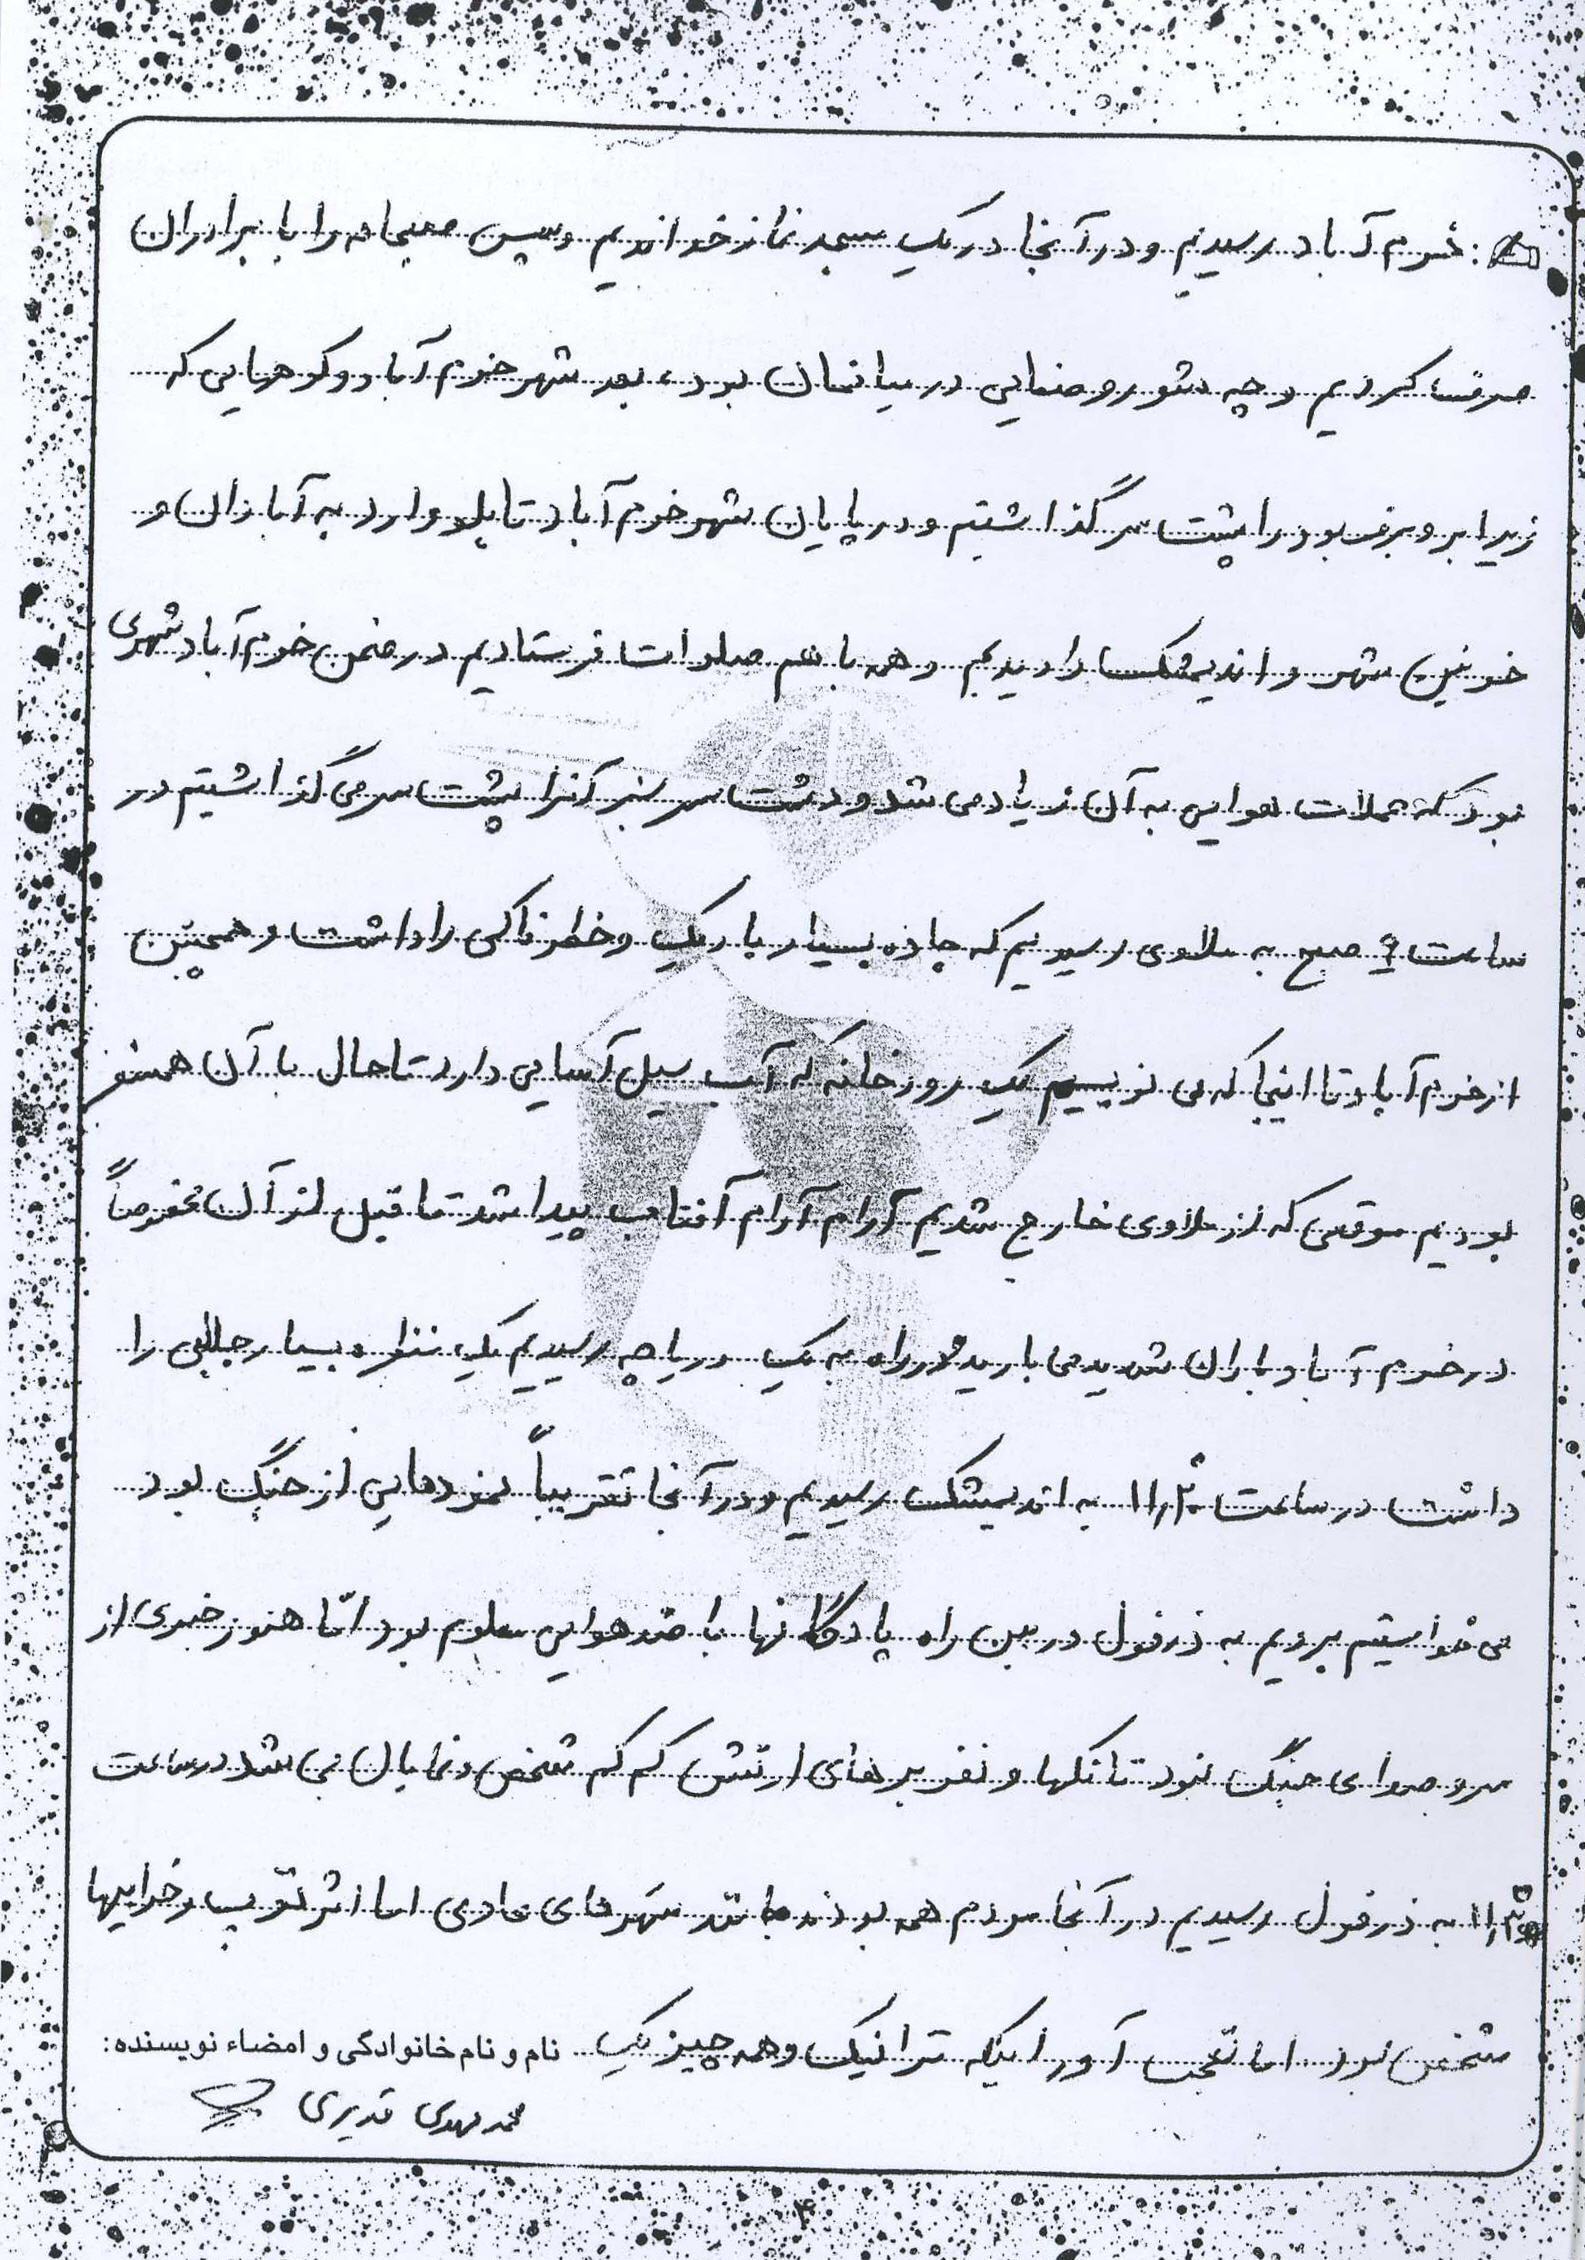 : خرم آباد رسیدیم و در آنجا در یک مسجد نماز خواندیم وسپس صبحانه را با برادران
صرف کردیم و چه شور و صفایی در میانمان بود، بعد شهر خرم آباد و کوههایی که
زیر ابر و برف بود را پشت سر گذاشتیم و در پایان شهر خرم آباد تابلو وارد به آبادان و
خونین شهر و اندیمشک را دیدیم و همه با هم صلوات فرستادیم در ضمن خرم آباد شهری
بود که حملات هوایی به آن زیاد می شد و دشت سر سبز آنرا پشت سر می گذاشتیم در
ساعت ۹ صبح به ملاوی رسیدیم که جاده بسیار باریک و خطرناکی را داشت و همچنین
از خرم آباد تا اینجا که می نویسیم یک رودخانه که آب سیل آسایی دارد تا حال با آن همسفر
بودیم موقعی که از ملاوی خارج شدیم آرام آرام آفتاب پیدا شد تا قبل از آن مخصوصاً
در خرم آباد باران شدید می بارید در راه به یک دریاچه رسیدیم یک منظره بسیار جالبی را
داشت در ساعت ۱۱/۲۰ به اندیمشک رسیدیم و در آنجا تقریباً نمودهایی از جنگ بود
می خواستیم برویم به دزفول در بین راه پادگانها با ضد هوایی معلوم بود امّا هنوز خبری از
سر و صدای جنگ نبود تانکها و نفربرهای ارتش کم کم مشخص و نمایان می شد در ساعت
به دزفول رسیدیم در آنجا مردم همه بودند مانند شهرهای عادی اما اثر توپ و خرابیها
مشخص بود اما تعجب آور اینکه ترافیک و همه چیز یک
نام و نام خانوادگی و امضاء نویسنده:
محمد مهدی قدیری
۴